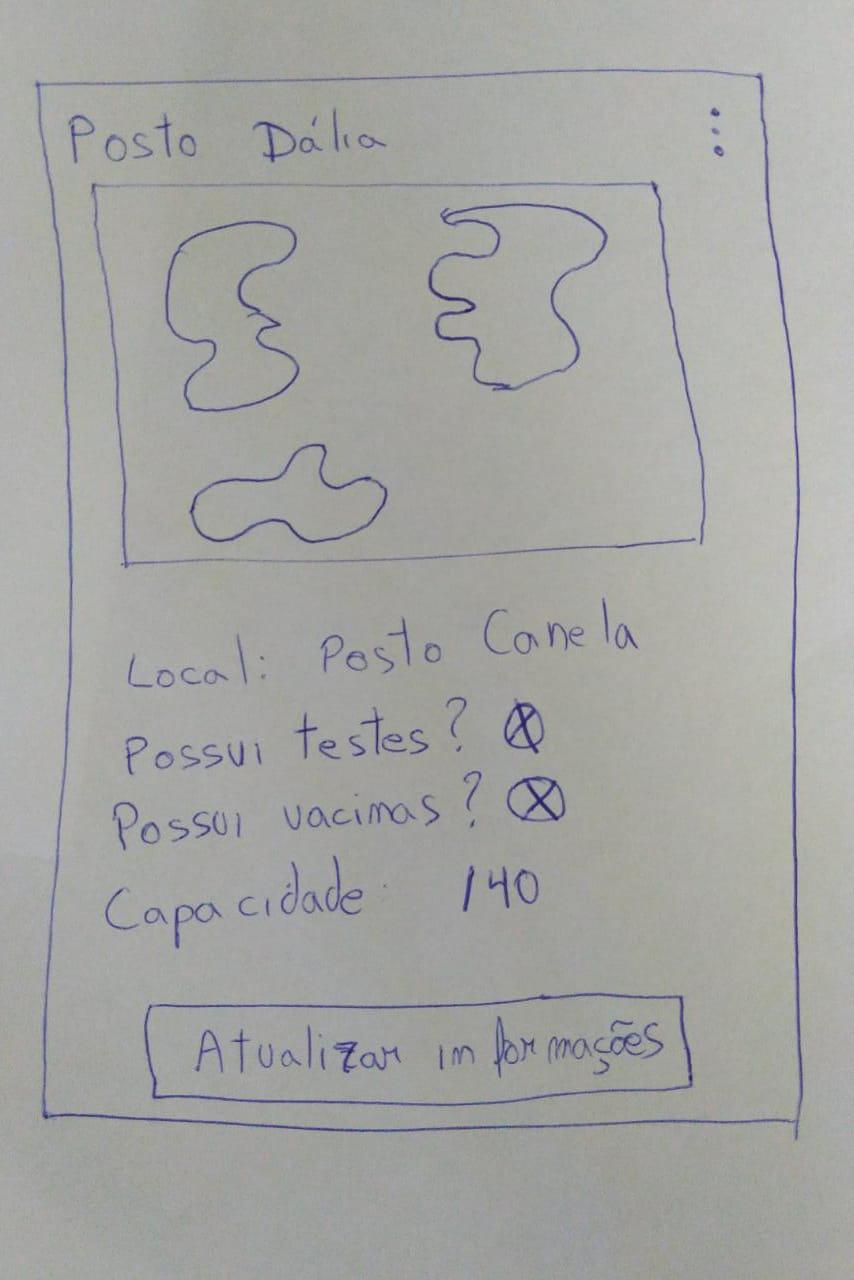 Posto Dália
Local: Posto Canela
Possui testes?
Possui vacinas?
Capacidade 140
Atualizar informações